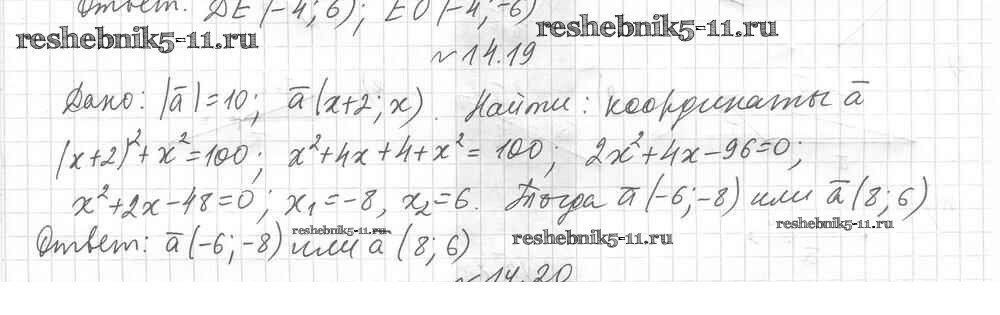 Ответ: DE (-4; 6); EO (-4; -6)
reshebnik5-11.ru
reshebnik5-11.ru
№14.19
Дано: |a̅|=10; a̅(x+2; x). Найти: координаты a̅
(x+2)²+x²=100; x²+4x+4+x²=100; 2x²+4x-96=0;
x²+2x-48=0; x₁=-8, x₂=6. Тогда a̅(-6;-8) или a̅(8; 6)
reshebnik5-11.ru
Ответ: a̅(-6;-8) или a̅(8; 6)
reshebnik5-11.ru
reshebnik5-11.ru
№14.20